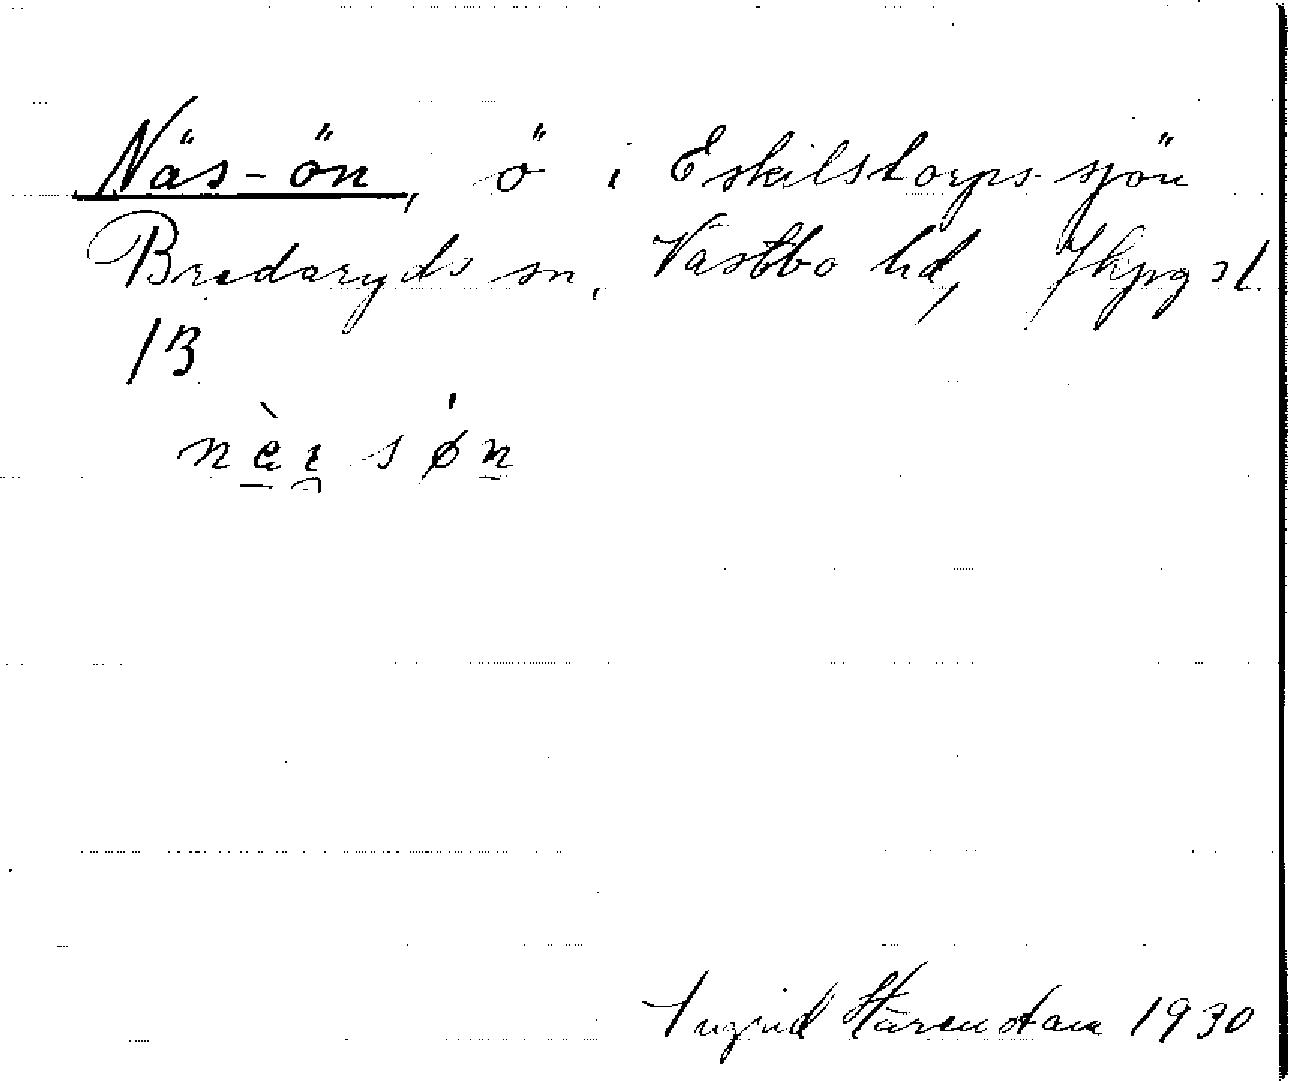 Näs-ön, ö i Eskilstorps sjön
Bredaryds sn, Västbo hd, Jkpg sl.
13
Ingrid Härenstam 1930